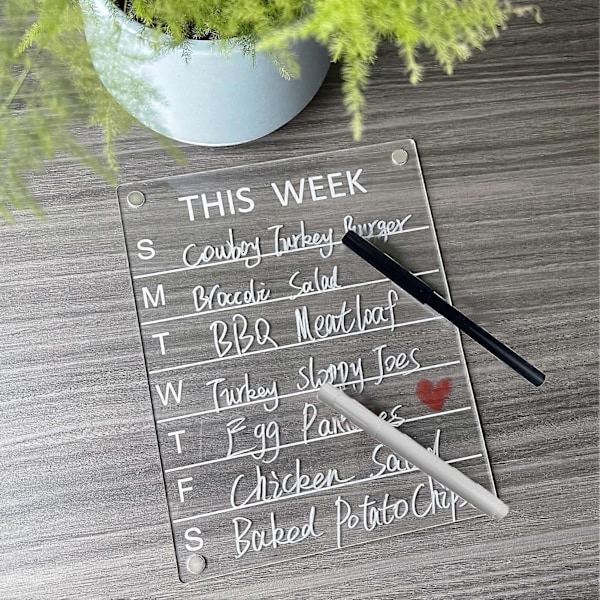 THIS WEEK
S Cowboy Turkey Burger
M Broccoli Salad
T BBQ Meatloaf
W Turkey Sloppy Joes
T Egg
F Chicken Salad
S Baked Potato Chips